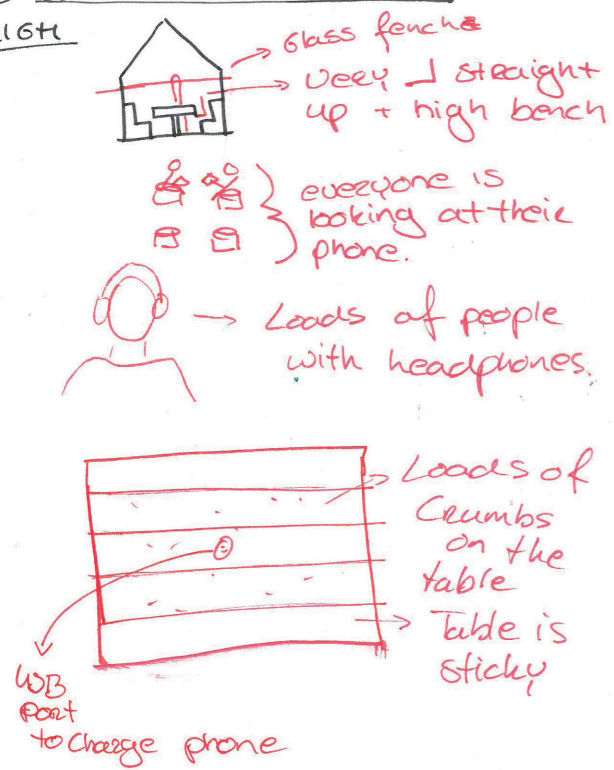 Glass fenche
Very ┘ straight
up + high bench
everyone is
looking at their
phone.
Loads of people
with headphones.
Loads of
Crumbs
on the
table
Table is
sticky
port
to charge phone